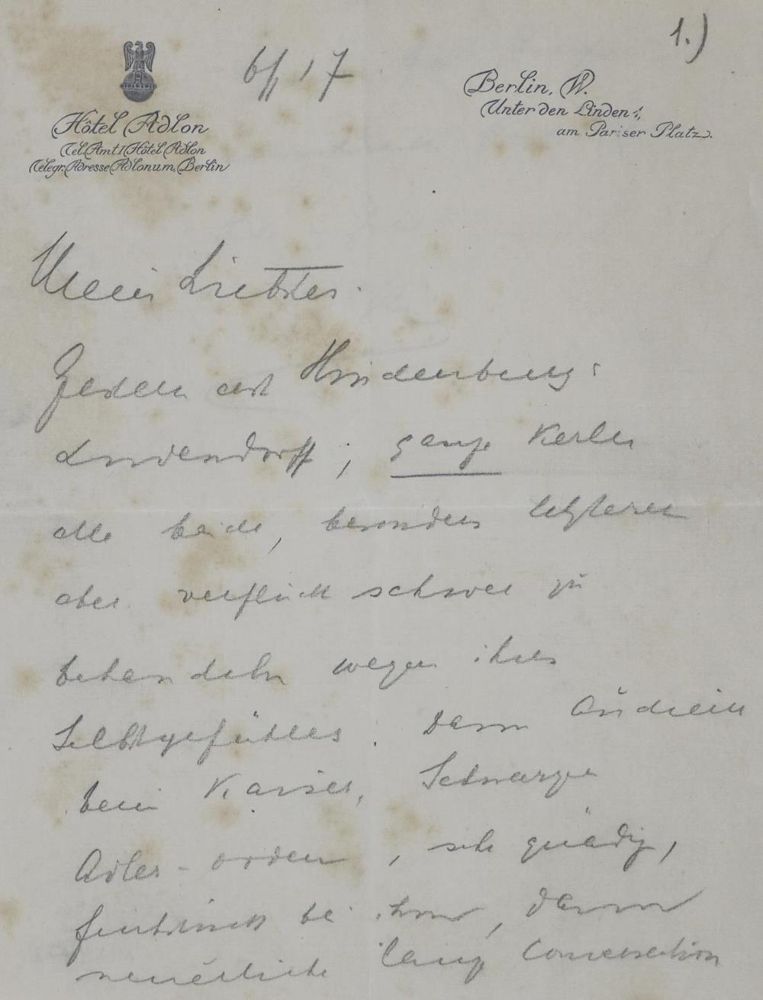 1.)
6/1 17
Hôtel Adlon
Tel. Amt I Hôtel Adlon
Telegr. Adresse Adlonum, Berlin
Berlin, W.
Unter den Linden 1,
am Pariser Platz.
Mein Liebster.
Gestern erst Hindenburg:
Ludendorff; ganze Kerle
alle beide, besonders letzterer
aber verflucht schwer zu
behandeln wegen ihres
Selbstgefühles. Dann Audienz
beim Kaiser, Schwarzer
Adler-orden, sehr gnädig,
Frühstück bei ihm, dann
neuerliche lange Conversation